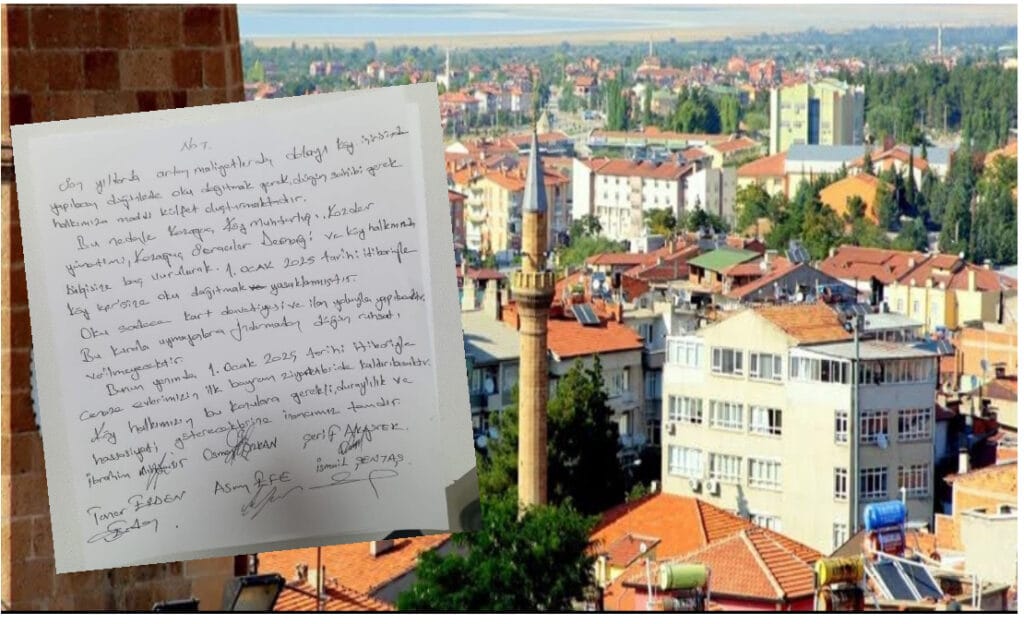 No 7.
Son yıllarda artan maliyetlerden dolayı köy içerisinde
yapılacak düğünlerde oku dağıtmak gerek, düğün sahibi gerek
halkımıza maddi külfet oluşturmaktadır.
Bu nedenle Kozağaç Köy Muhtarlığı, Kozader
yönetimi, Kozağaç Derneği ve köy halkımızın
bilgisine baş vurularak. 1. OCAK 2025 tarihi itibariyle
köy içerisine oku dağıtmak yasaklanmıştır.
Oku sadece kart davetiyesi ve ilan yoluyla yapılacaktır.
Bu kurala uymayanlara Jandarmadan düğün ruhsatı
verilmeyecektir.
Bunun yanında, 1. Ocak 2025 tarihi itibariyle
Cenaze evlerimizin ilk bayram ziyaretleride kaldırılacaktır.
Köy halkımızın bu konulara gerekli, duyarlılık ve
hassasiyeti göstereceklerine inancımız tamdır.
İbrahim Osman ÖZKAN Şerif
Taner ERDEN Asım EFE İsmail ŞENTAŞ